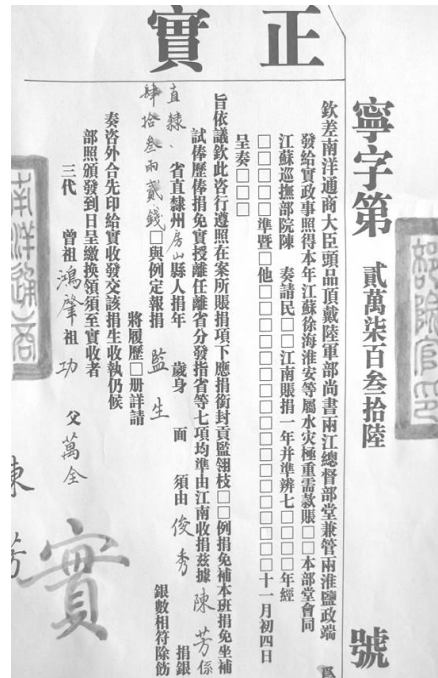 正實
寧字第 貳萬柒百叁拾陸 號
欽差南洋通商大臣頭品頂戴陸軍部尚書兩江總督部堂兼管兩淮鹽政端 爲
發給實收事照得本年江蘇徐海淮安等屬水灾極重需款賑□□本部堂會同
江蘇巡撫部院陳 奏請民□□江南賑捐一年并準辦七□□□□年經
□□□□□準暨□他□□□□□□□□□□□□十一月初四日
呈奏□□□
旨依議欽此咨行遵照在案所賬捐項下應捐銜封貢監翎枝□□例捐免補本班捐免坐補
試俸歷俸捐免實授離任離省分發指省等七項均準由江南收捐兹據 陳芳 係
直隸、省直隸州房山縣人捐年 歲身 面 須由 俊秀 捐銀
肆拾叁兩貳錢□與例定報捐 監生 銀數相符除飭
將履歷□册詳請
奏咨外合先印給實收發交該捐生收執仍候
部照頒發到日呈繳換領須至實收者
三代 曾祖 鴻肇 祖 功 父 萬全
實
陳芳
南洋通商
部院官印